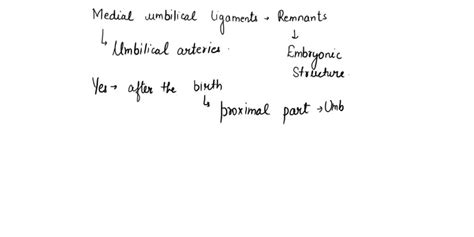 Medial umbilical ligaments → Remnants
↳ Umbilical arteries.
↓
Embryonic
Structure.
Yes → after the birth
↳ proximal part → Umb